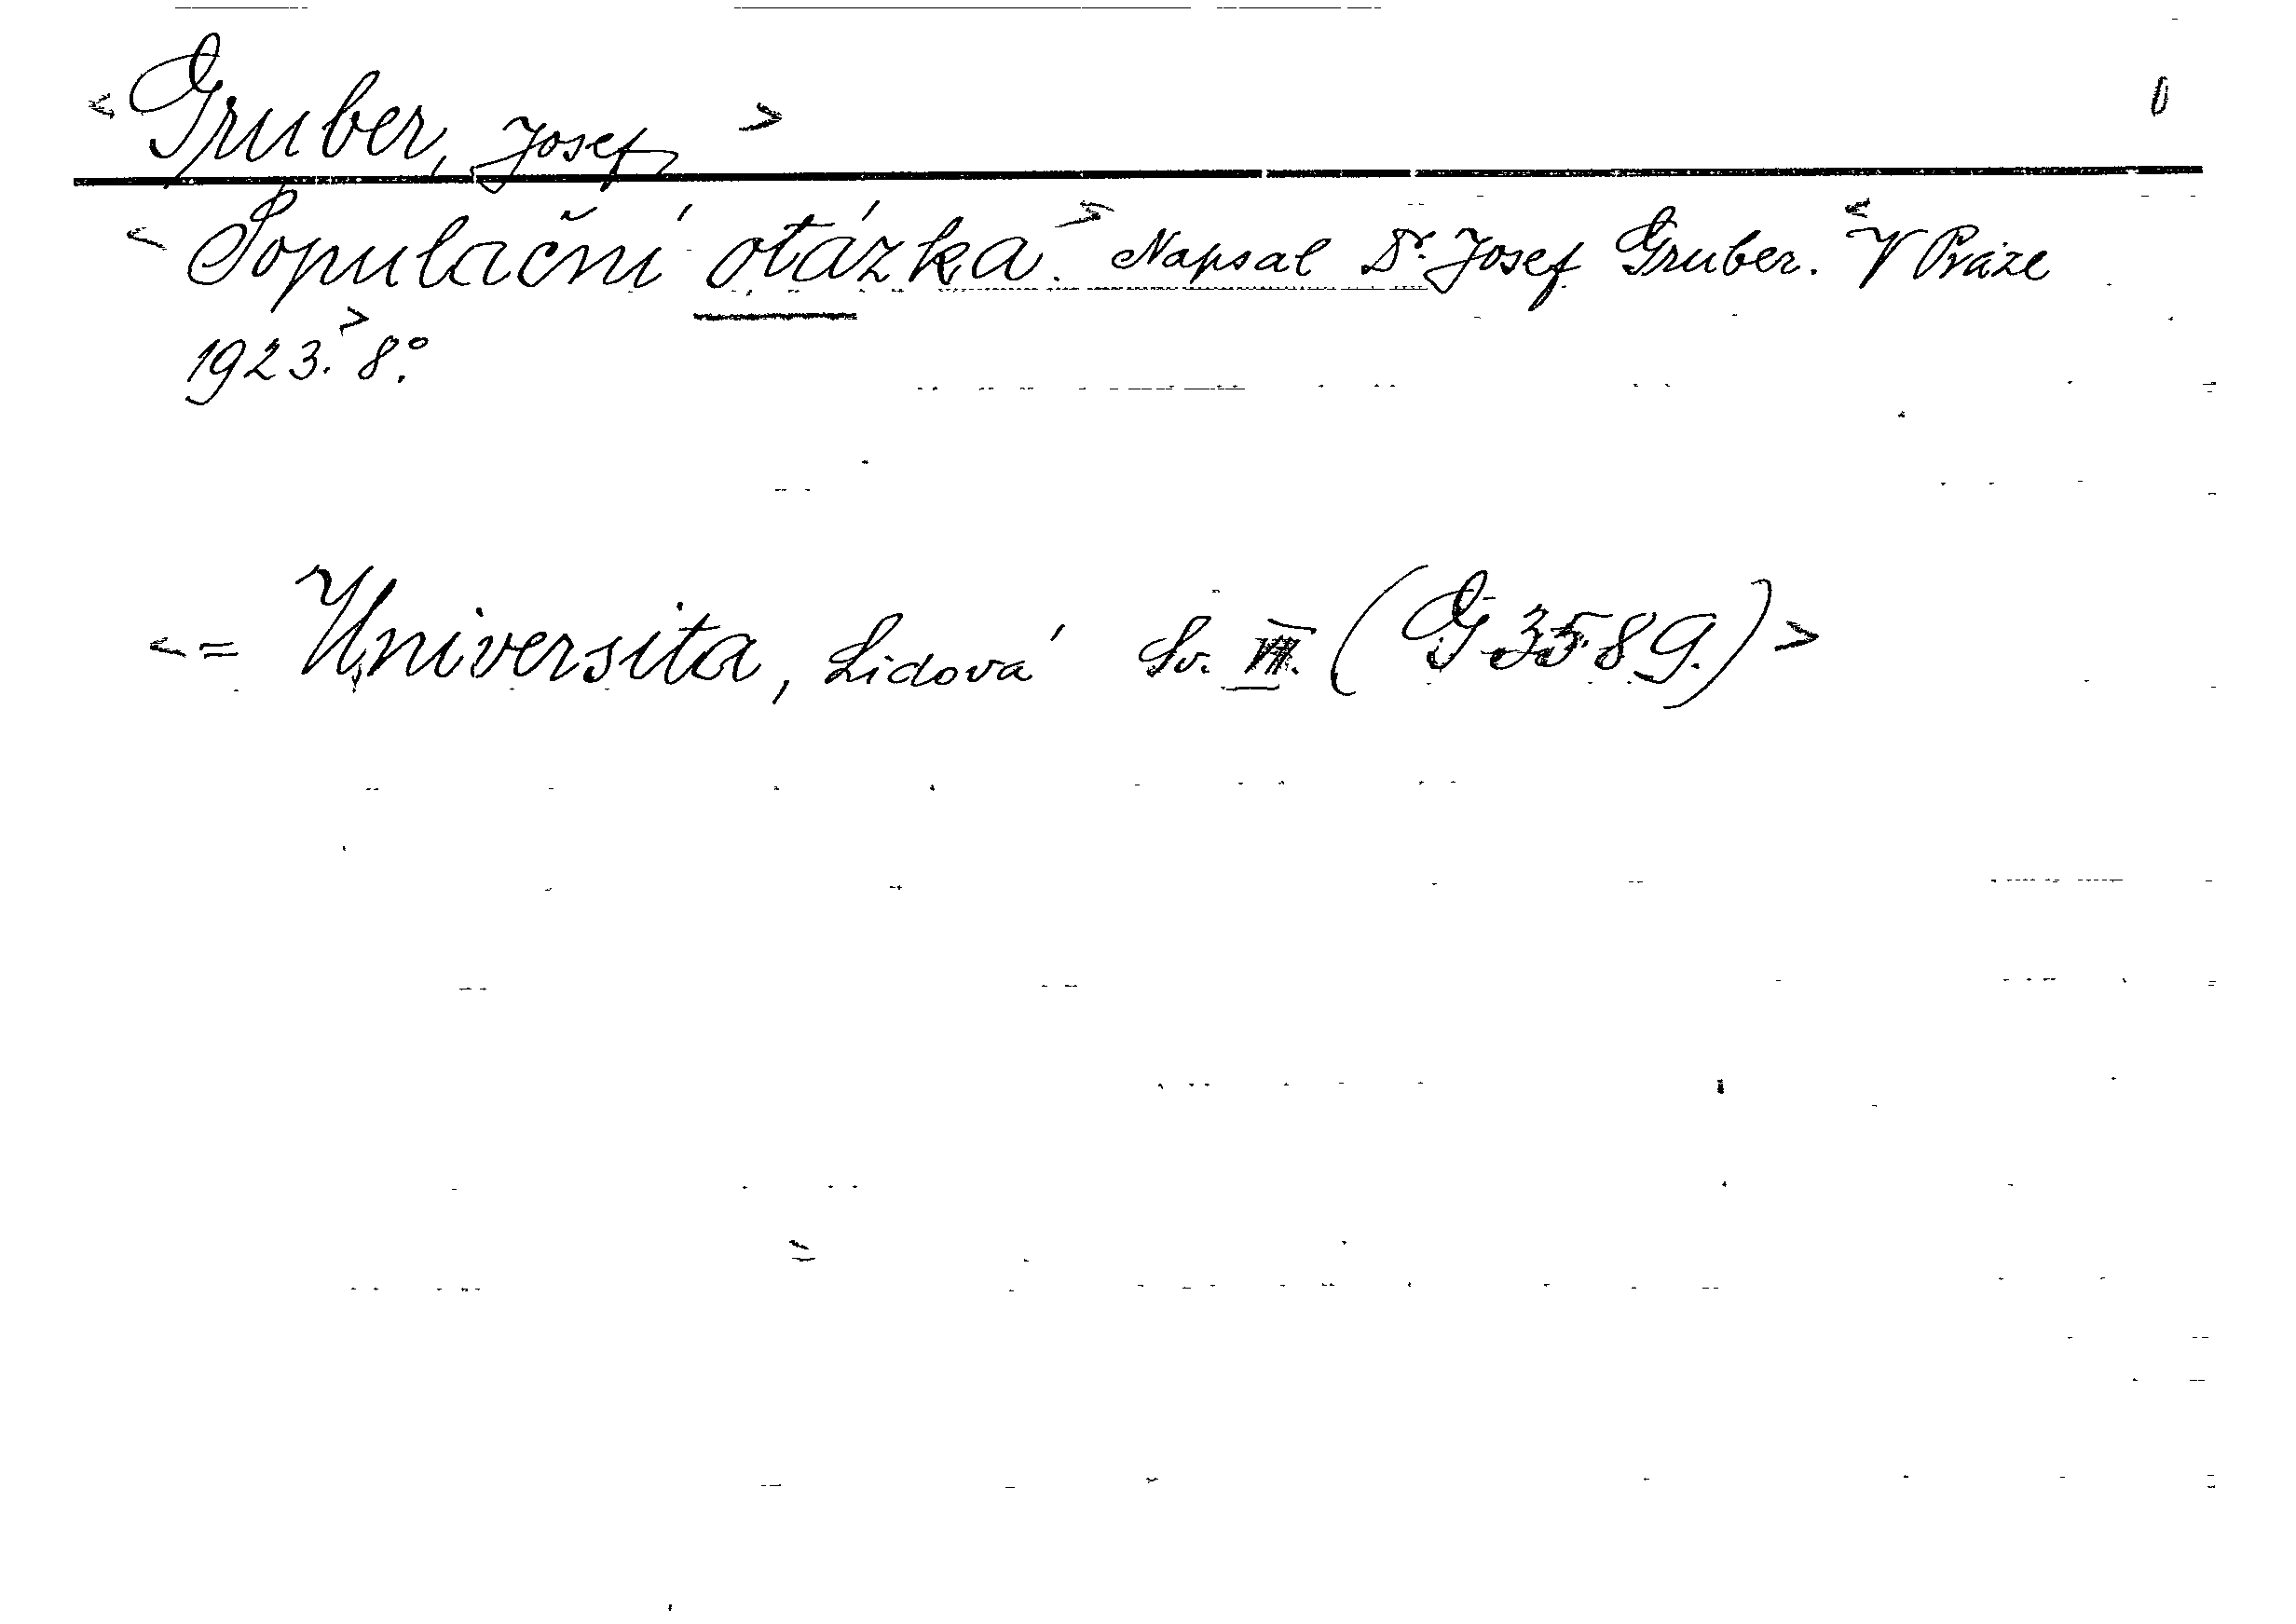 <Gruber, Josef> 0
<Populační otázka.> Napsal Dr. Josef Gruber. <V Praze
1923.> 8°.
<= Universita, Lidová Sv. VII. (G 3589.)>